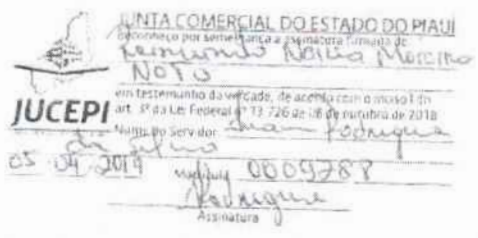 JUNTA COMERCIAL DO ESTADO DO PIAUÍ
Reconheço por semelhança a assinatura firmada de
Raimundo Moreira
Noto
em testemunho da verdade, de acordo com o inciso I do
JUCEPI
art. 3º da Lei Federal nº 13.726 de 08 de outubro de 2018
Nome do Servidor Rodrigues
da Silva
05 04 2019 0009788
Rodrigues
Assinatura